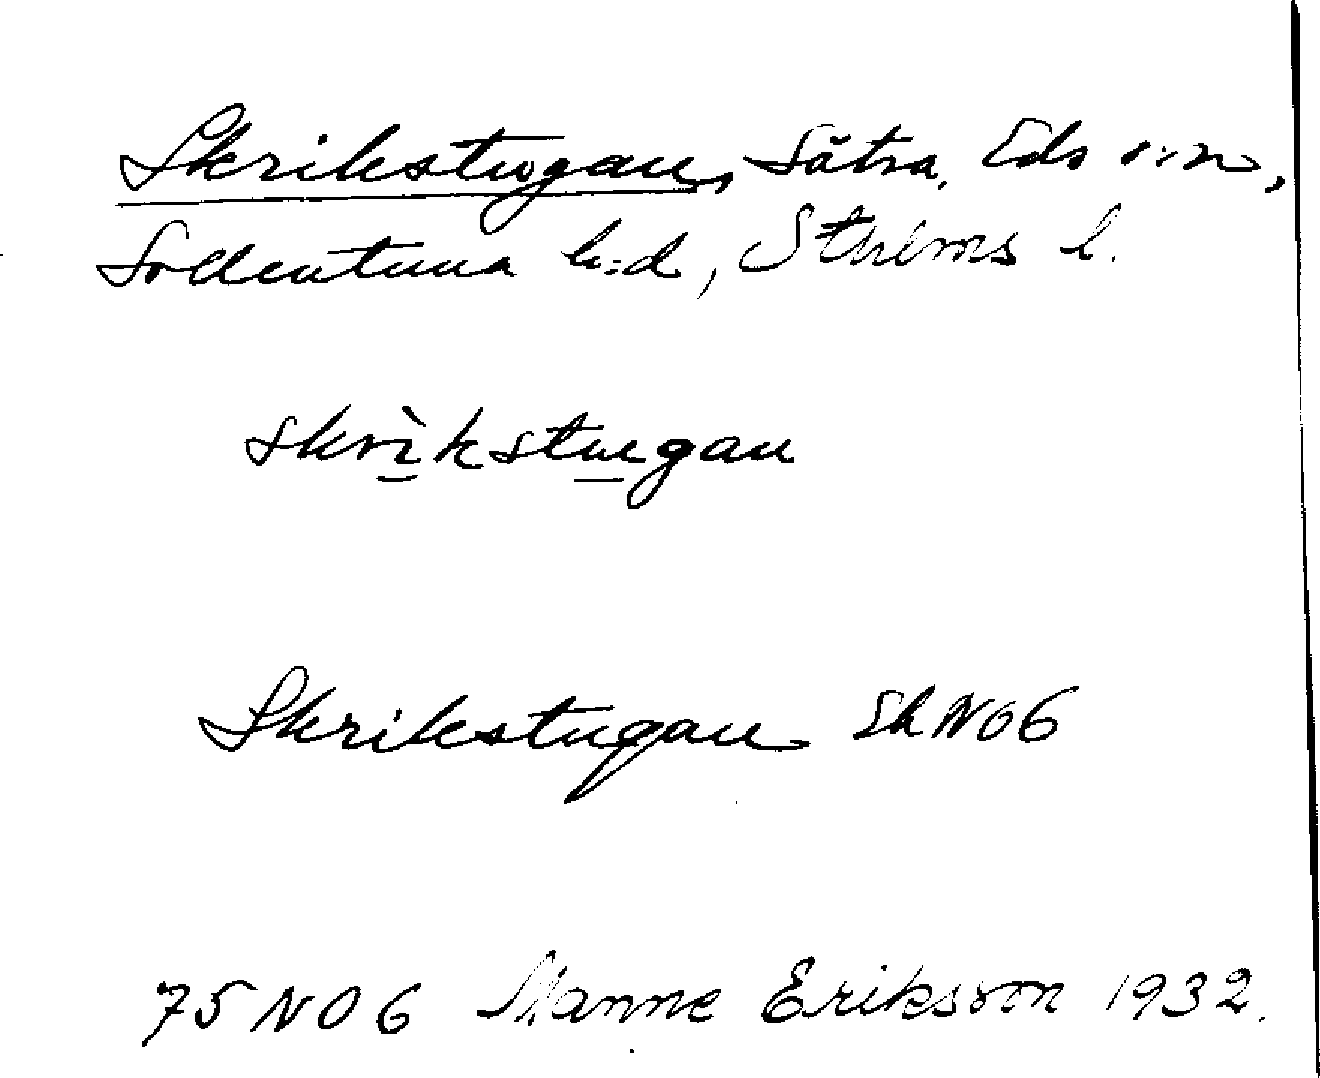 Skrikstugan, Sätra, Eds s:n,
Sollentuna h:d, Sthlms l.
skrìkstugan
Skrikstugan Sk NO6
75 NO 6 Manne Eriksson 1932.